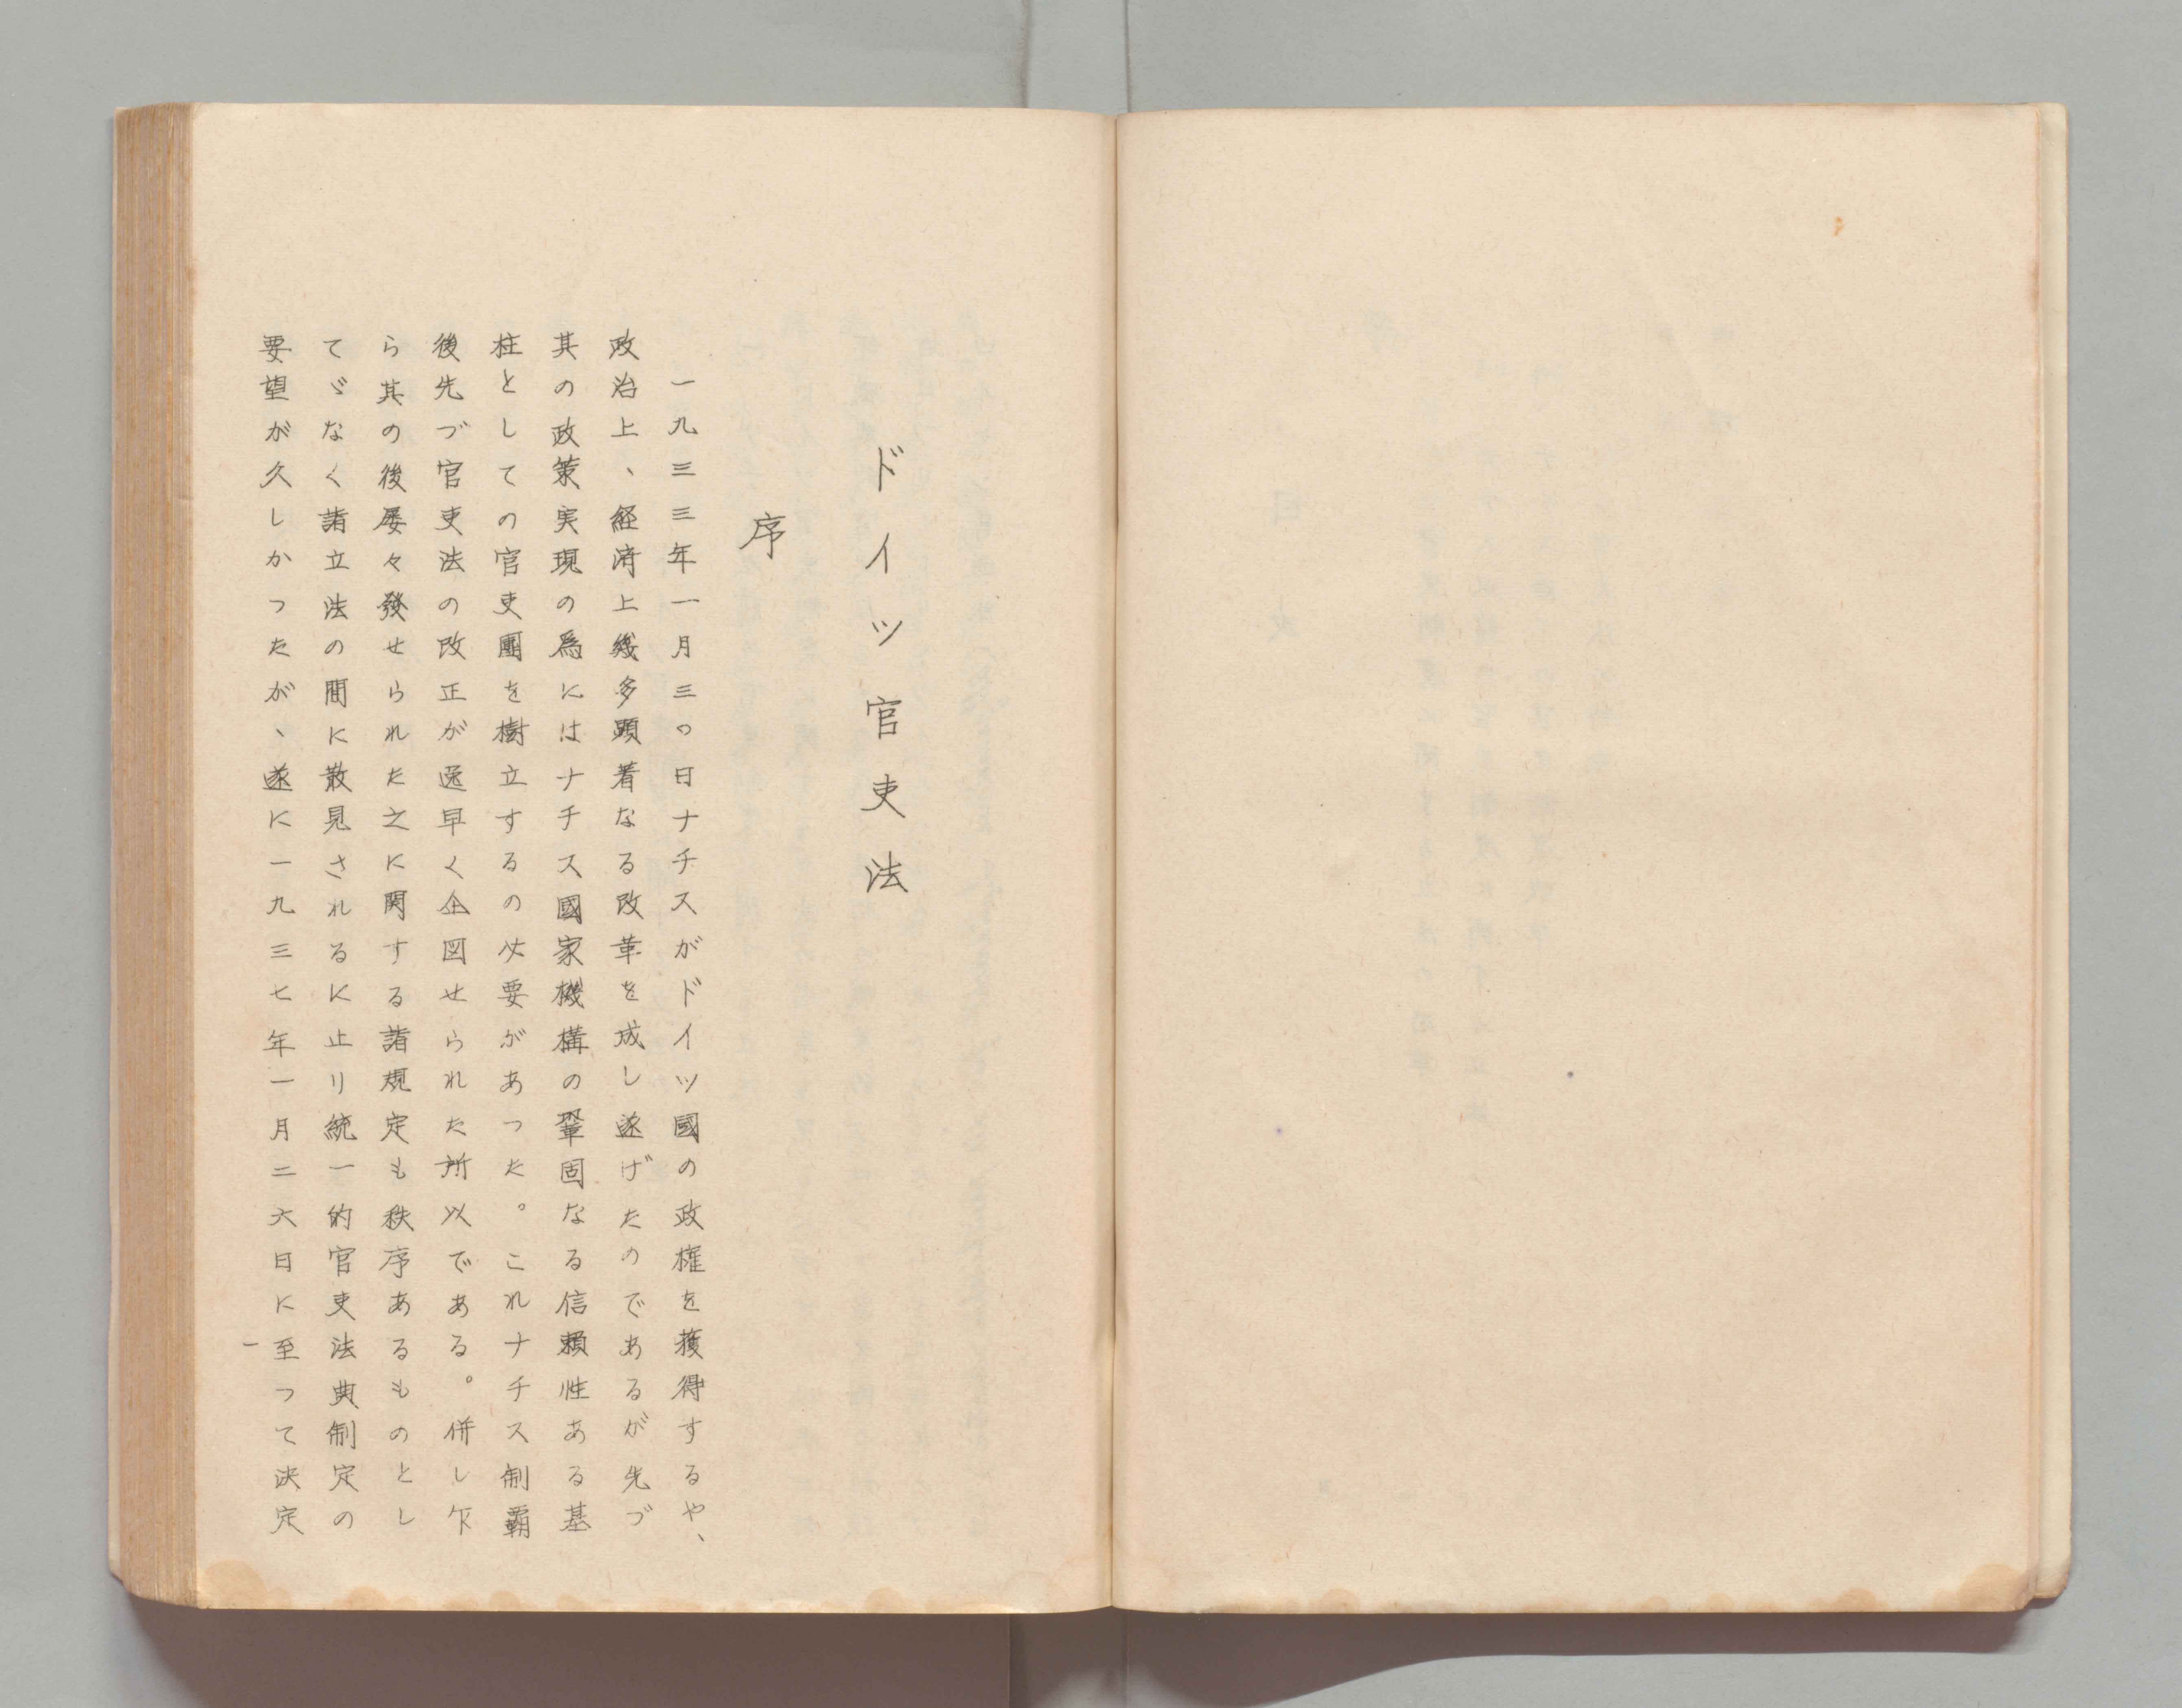 ドイツ官吏法
序
一九三三年一月三〇日ナチスがドイツ國の政権を獲得するや、
政治上、経済上幾多顕著なる改革を成し遂げたのであるが先づ
其の政策実現の爲にはナチス國家機構の鞏固なる信頼性ある基
柱としての官吏團を樹立するの必要があつた。これナチス制覇
後先づ官吏法の改正が逸早く企図せられた所以である。併し乍
ら其の後屡々發せられた之に関する諸規定も秩序あるものとし
てゞなく諸立法の間に散見されるに止り統一的官吏法典制定の
要望が久しかつたが、遂に一九三七年一月二六日に至つて決定
一